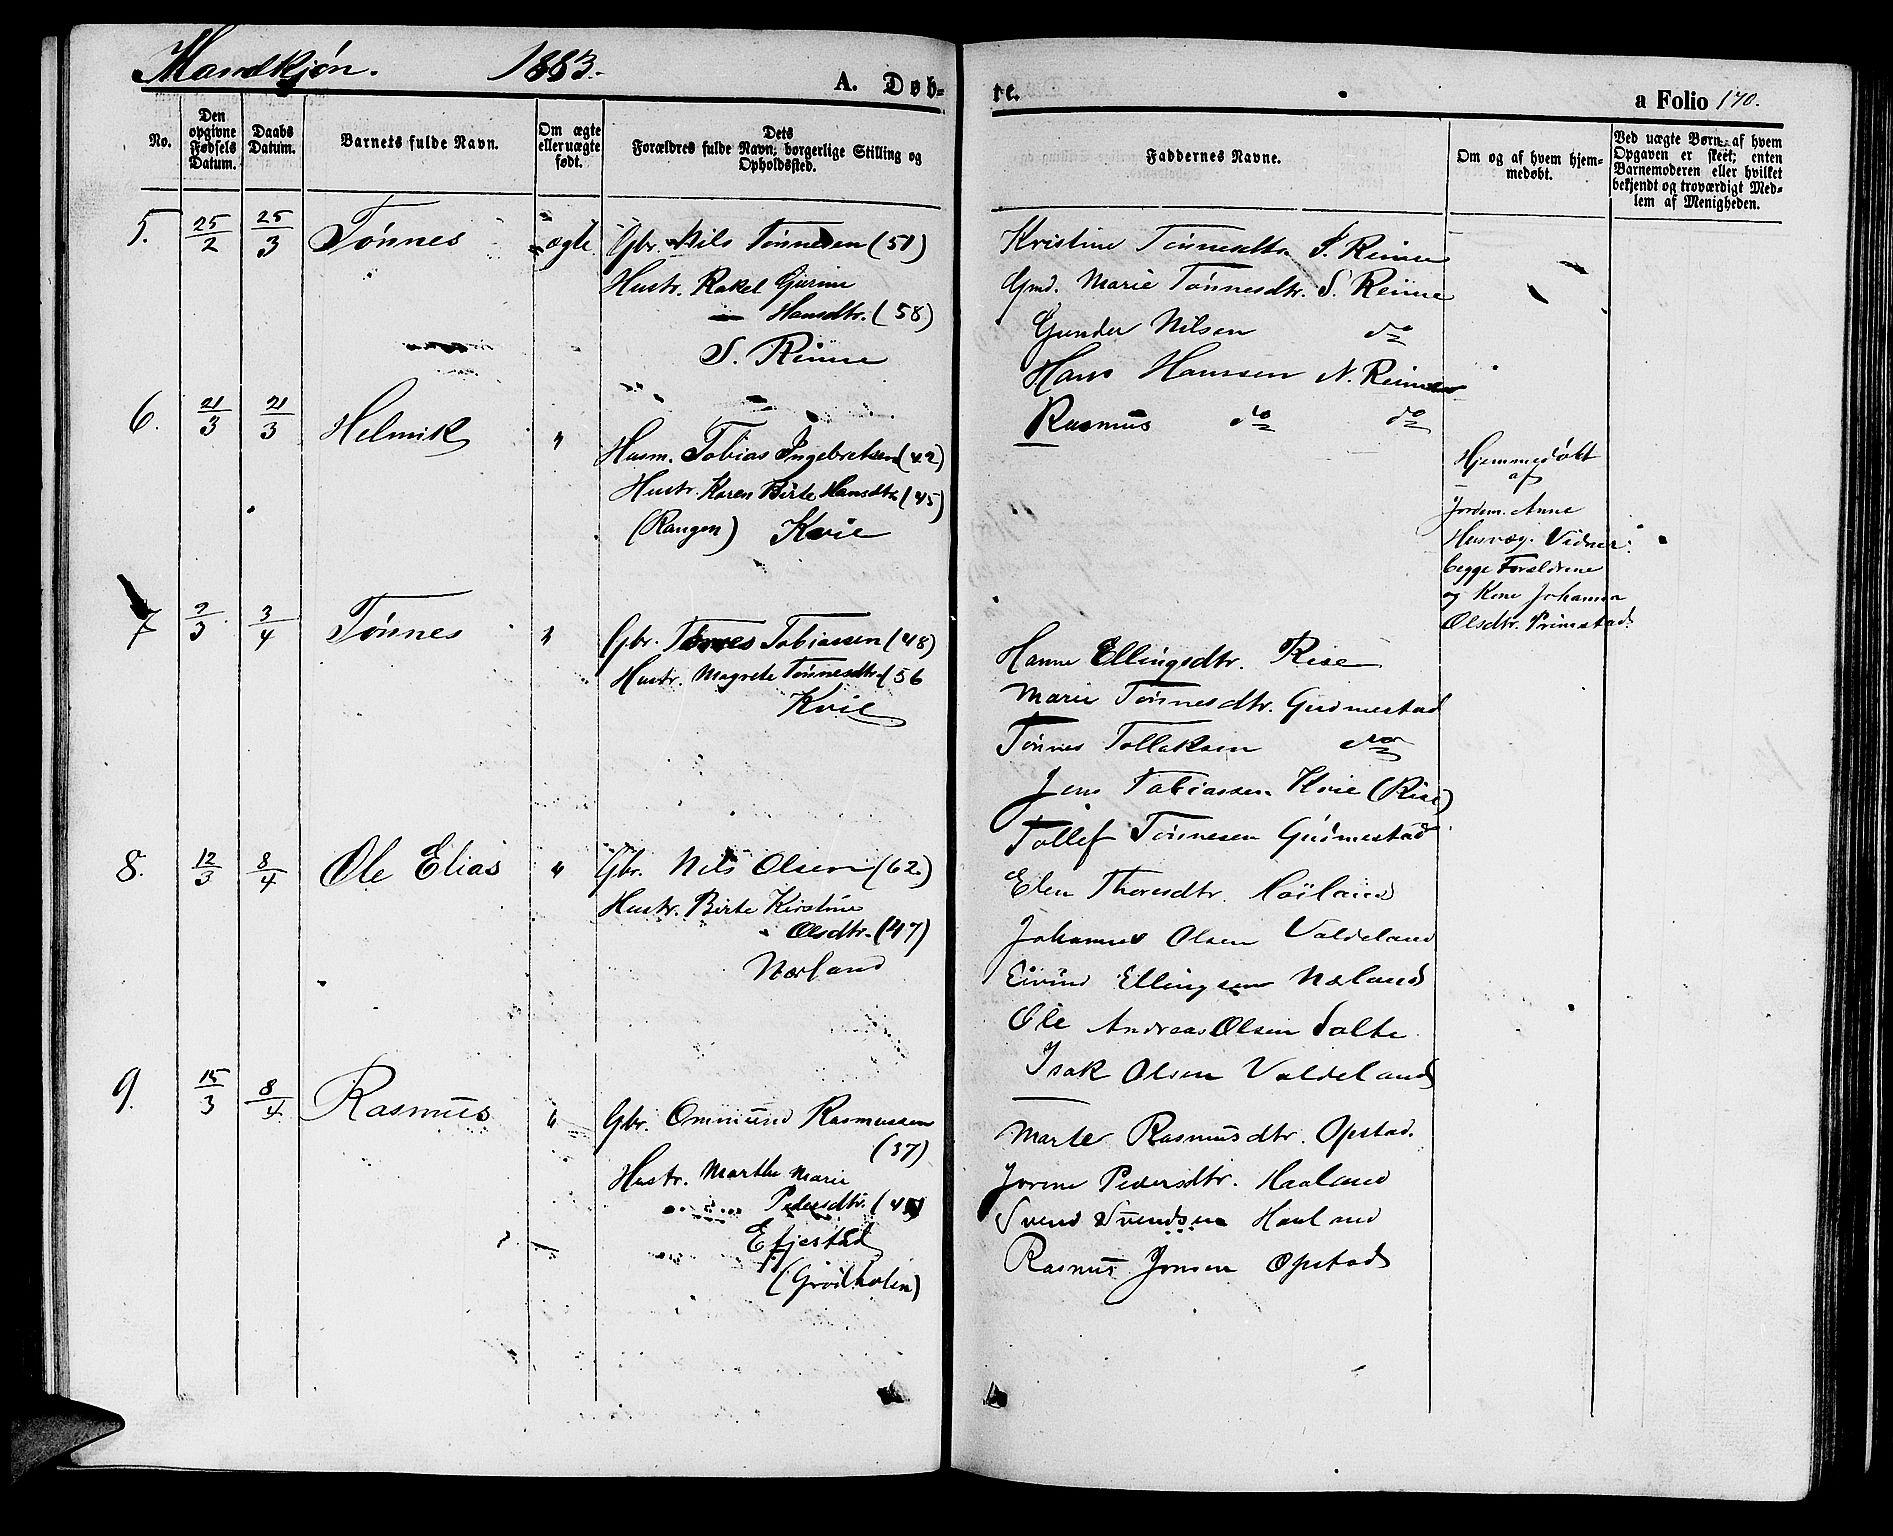 Mandkjøn. 1883.
A. Døb-
te.
a Folio 170.
No.
Den opgivne Fødsels Datum.
Daabs Datum.
Barnets fulde Navn.
Om ægte eller uægte født.
Dets Forældres fulde Navn, borgerlige Stilling og Opholdssted.
Faddernes Navne.
Om og af hvem hjemmedøbt.
Ved uægte Børn: af hvem Opgaven er skeet; enten Barnemoderen eller hvilket bekjendt og troværdigt Medlem af Menigheden.
5. 25/2 25/3 Tønnes ægte Gbr. Nils Tønnesen (51)
Hustr. Rakel Gurine
Hansdtr. (58)
S. Reime
Kristine Tønnesdtr. S. Reime
Gmd. Marie Tønnesdtr. S. Reime
Gunder Nilsen do
Hans Hanssen N. Reime
Rasmus do do
6. 21/3 21/3 Helmik " Husm. Tobias Ingebretsen (42)
Hustr. Karen Birte Hansdtr. (45)
(Rangen) Kvie
Hjemmedøbt
af
Jordem. Anne
Husvæg. Vidner:
begge Forældrene
og Kone Johanna
Olsdtr. Primstad.
7 2/3 3/4 Tønnes " Gbr. Tønnes Tobiassen (48)
Hustr. Magrete Tønnesdtr. (56
Kvie
Hanne Ellingsdtr. Rise
Marie Tønnesdtr. Gudmestad
Tønnes Tollaksen do
Jens Tobiassen Kvie (Rise)
Tollef Tønnesen Gudmestad
8. 12/3 8/4 Ole Elias " Gbr. Nils Olsen (62)
Hustr. Birte Kirstine
Olsdtr. (47)
Nærland
Elen Thoresdtr. Høiland
Johannes Olsen Valdeland
Eivind Ellingsen Næland
Ole Andreas Olsen Salte
Isak Olsen Valdeland
9. 15/3 8/4 Rasmus " Gbr. Ommund Rasmussen
(37)
Hustr. Marthe Marie
Pedersdtr.
Efjestad
(Grødholen)
Marte Rasmusdtr. Opstad.
Jorine Pedersdtr. Haaland
Svend Svendsen Haaland
Rasmus Jonsen Opstad